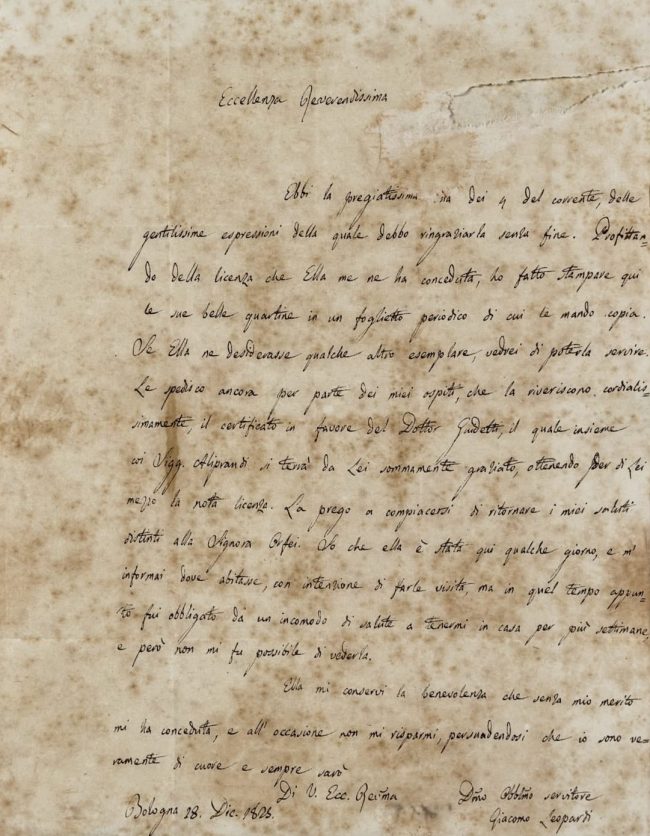 Eccellenza Reverendissima
Ebbi la pregiatissima sua dei 4 del corrente, delle
gentilissime espressioni della quale debbo ringraziarla senza fine. Profittan-
do della licenza che Ella me ne ha conceduta, ho fatto stampare qui
le sue belle quartine in un foglietto periodico di cui le mando copia.
Se Ella ne desiderasse qualche altro esemplare, vedrei di poterla servire.
Le spedisco ancora per parte dei miei ospiti, che la riveriscono cordialis-
simamente, il certificato in favore del Dottor Guidetti, il quale insieme
coi Sigg. Aliprandi si terrà da Lei sommamente graziato, ottenendo per di Lei
mezzo la nota licenza. La prego a compiacersi di ritornare i miei saluti
distinti alla Signora Orfei. So che ella è stata qui qualche giorno, e m'
informai dove abitasse, con intenzione di farle visita, ma in quel tempo appun-
to fui obbligato da un incomodo di salute a tenermi in casa per più settimane,
e però non mi fu possibile di vederla.
Ella mi conservi la benevolenza che senza mio merito
mi ha conceduta, e all' occasione non mi risparmi, persuadendosi che io sono ve-
ramente di cuore e sempre sarò
Di V. Ecc. Revma
Bologna 28. Dic. 1825.
Dmo Obblmo servitore
Giacomo Leopardi